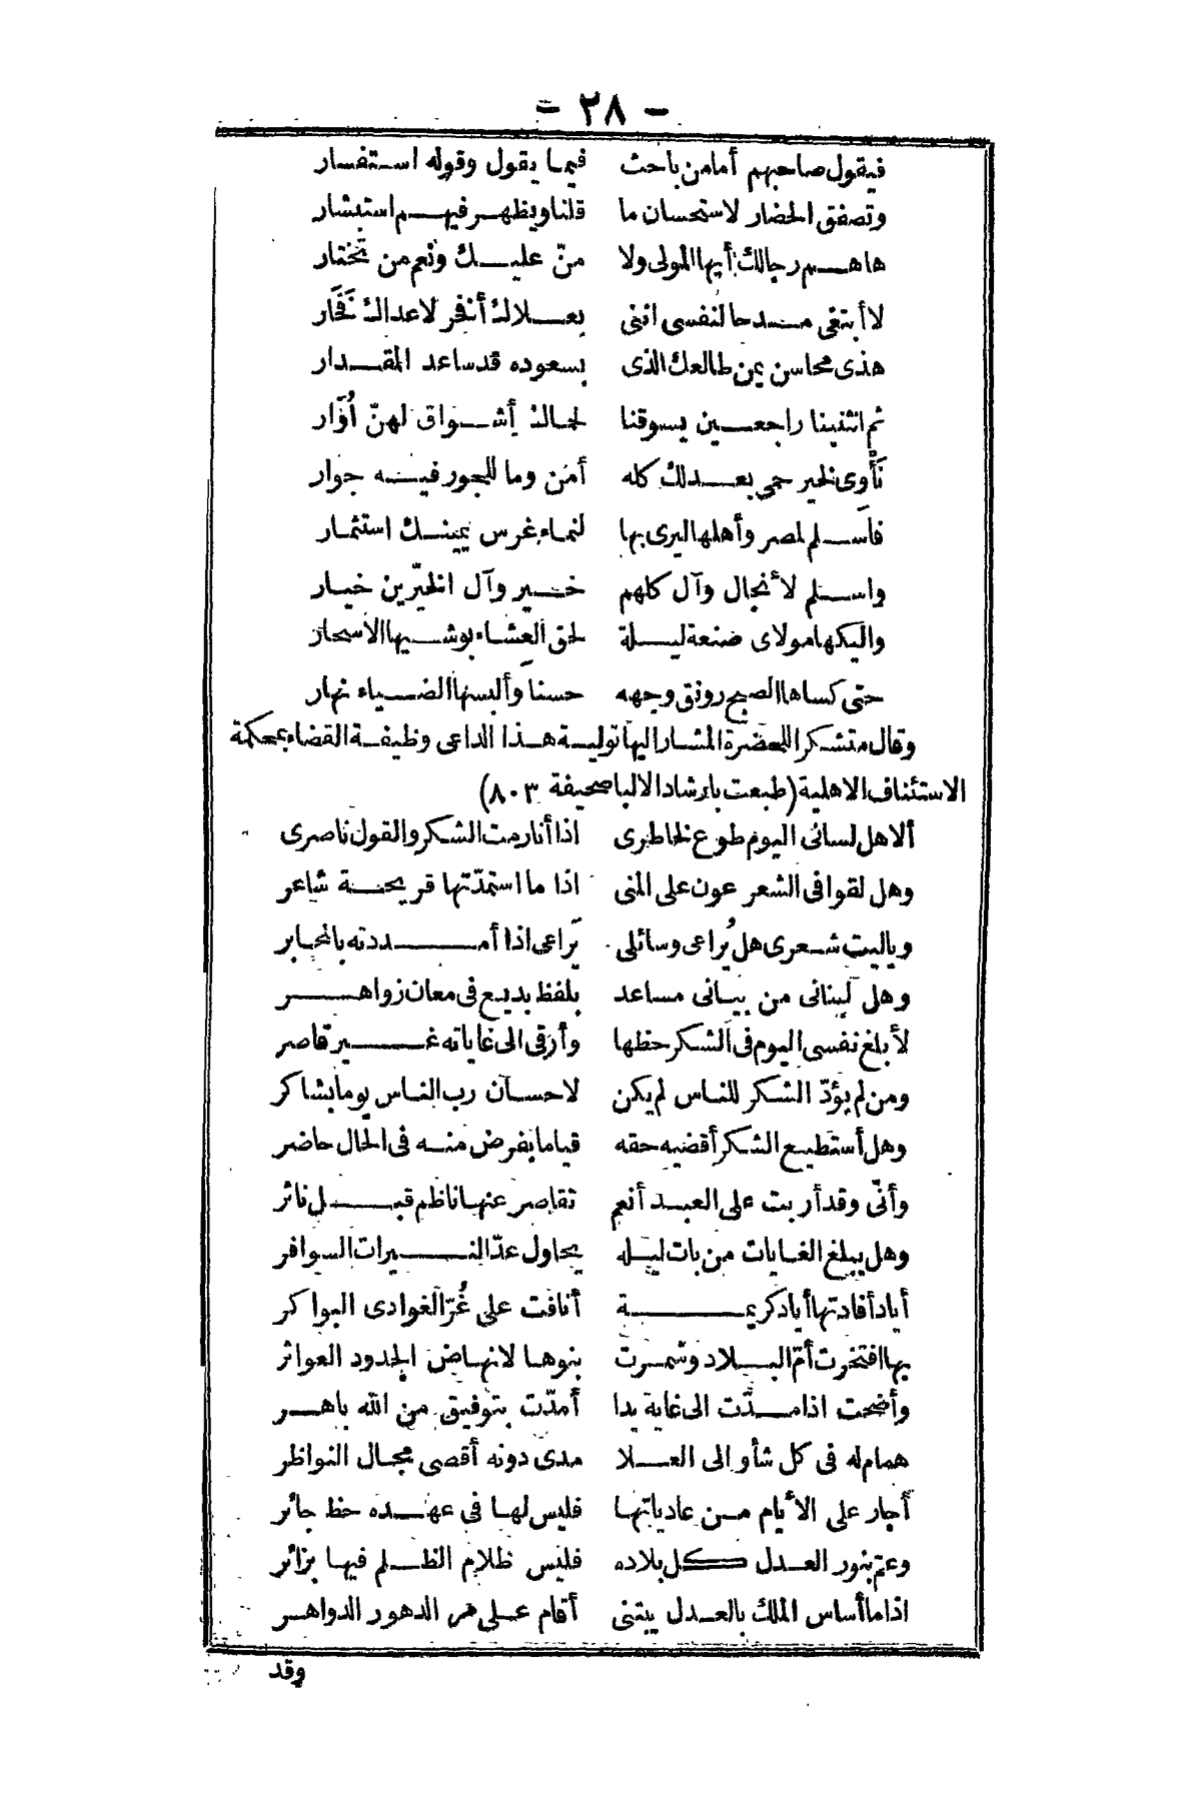 - ٢٨ -
فيقول صاحبهم أمامن باحث فيما يقول وقوله استفسار
وتصفق الحضار لاستحسان ما قلنا ويظهر فيهم استبشار
ها هم رجالك أيها المولى ولا منّ عليك ونعم من تختار
لا أبتغى مدحا لنفسى اننى بعلاك أنفر لاعداك نَفَّار
هذى محاسن يمن طالعك الذى بسعوده قد ساعد المقدار
ثم انثنينا راجعين يسوقنا لحماك أشواق لهنّ أُوّار
نَأْوى لخير حمى بعدلك كله أمن وما للجور فيه جوار
فاسلم لمصر وأهلها ليرى بها لنماء غرس يمينك استثمار
واسلم لأنجال وآل كلهم خير وآل الخيّرين خيار
واليكها مولاى صنعة ليلة لحق العشاء بوشيها الاسحار
حتى كساها الصبح رونق وجهه حسنا وألبسها الضياء نهار
وقال متشكرا للحضرة المشار اليها تولية هذا الداعى وظيفة القضاء بمحكمة
الاستئناف الاهلية (طبعت بارشاد الالبا صحيفة ٨٠٣)
ألا هل لسانى اليوم طوع لخاطرى اذا أنا رمت الشكر والقول ناصرى
وهل لقوافى الشعر عون على المنى اذا ما استمدّتها قريحة شاعر
وياليت شعرى هل يُراعى وسائلى يَراعى اذا أمددته بالمحابر
وهل لبنانى من بيانى مساعد بلفظ بديع فى معان زواهر
لأبلغ نفسى اليوم فى الشكر حظها وأرقى الى غاياته غير قاصر
ومن لم يؤدّ الشكر للناس لم يكن لاحسان رب الناس يوما بشاكر
وهل أستطيع الشكر أقضيه حقه قياما بفرض منه فى الحال حاضر
وأنّى وقد أربت على العبد أنعم تقاصر عنها ناظم قبل ناثر
وهل يبلغ الغايات من بات ليله يحاول عدّ النيرات السوافر
أياد أفادتها أياد كريمة أنافت على غُرّ الغوادى البواكر
بها افتخرت أمّ البلاد وشمرت بنوها لانهاض الجدود العواثر
وأضحت اذا مدّت الى غاية يدا أمدّت بتوفيق من الله باهر
همام له فى كل شأو الى العلا مدى دونه أقصى مجال النواظر
أجار على الأيام من عادياتها فليس لها فى عهده حظ جائر
وعم بنور العدل كل بلاده فليس ظلام الظلم فيها بزائر
اذا ما أساس الملك بالعدل يبتنى أقام على مر الدهور الدواهر
وقد